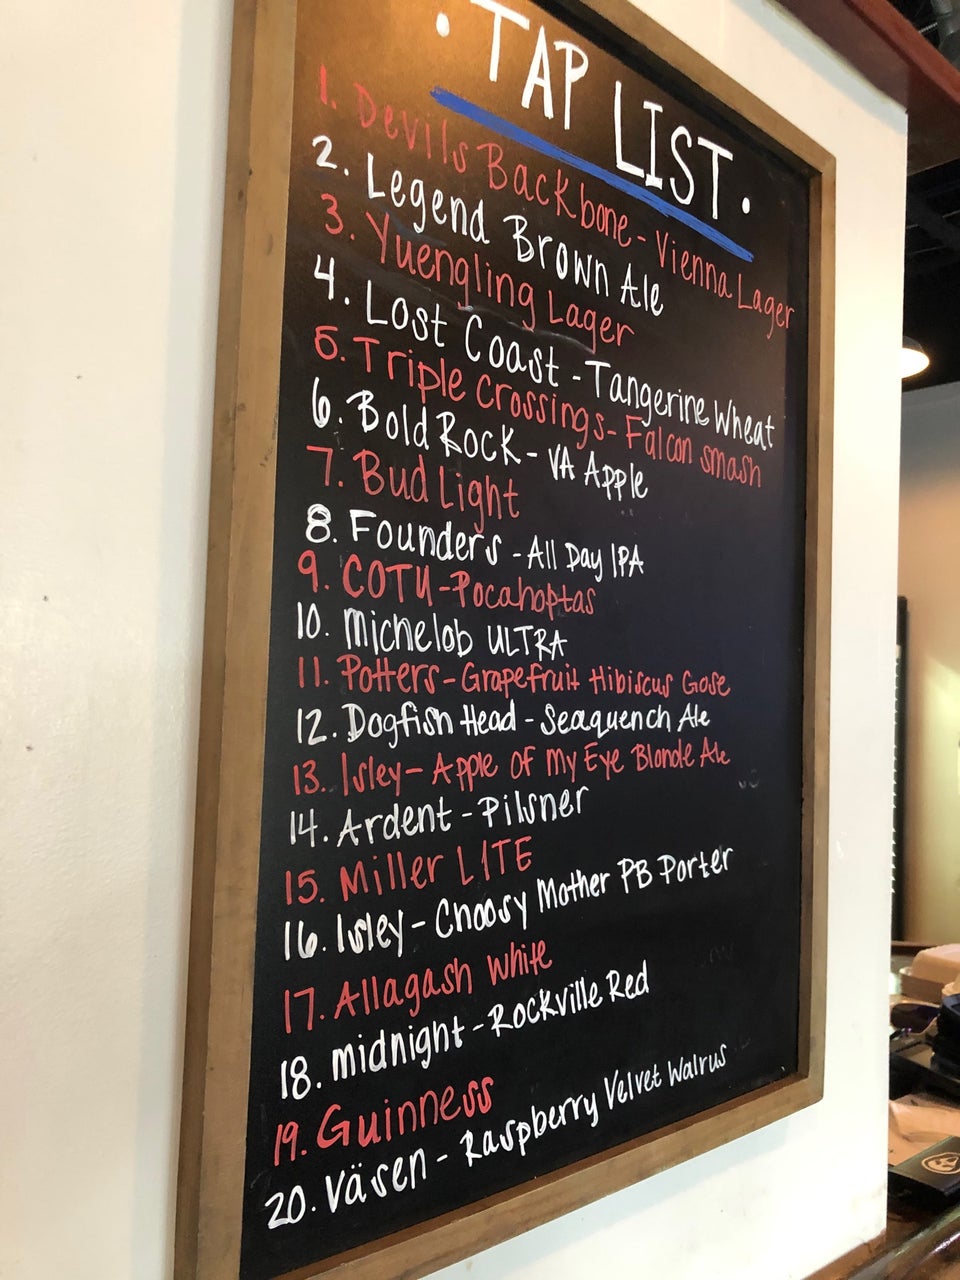 · TAP LIST ·
1. Devils Backbone - Vienna Lager
2. Legend Brown Ale
3. Yuengling Lager
4. Lost Coast - Tangerine Wheat
5. Triple Crossings - Falcon smash
6. Bold Rock - VA Apple
7. Bud Light
8. Founders - All Day IPA
9. COTU - Pocahoptas
10. Michelob ULTRA
11. Potters - Grapefruit Hibiscus Gose
12. Dogfish Head - Seaquench Ale
13. Isley - Apple of My Eye Blonde Ale
14. Ardent - Pilsner
15. Miller LITE
16. Isley - Choosy Mother PB Porter
17. Allagash White
18. midnight - Rockville Red
19. Guinness
20. Väsen - Raspberry Velvet Walrus